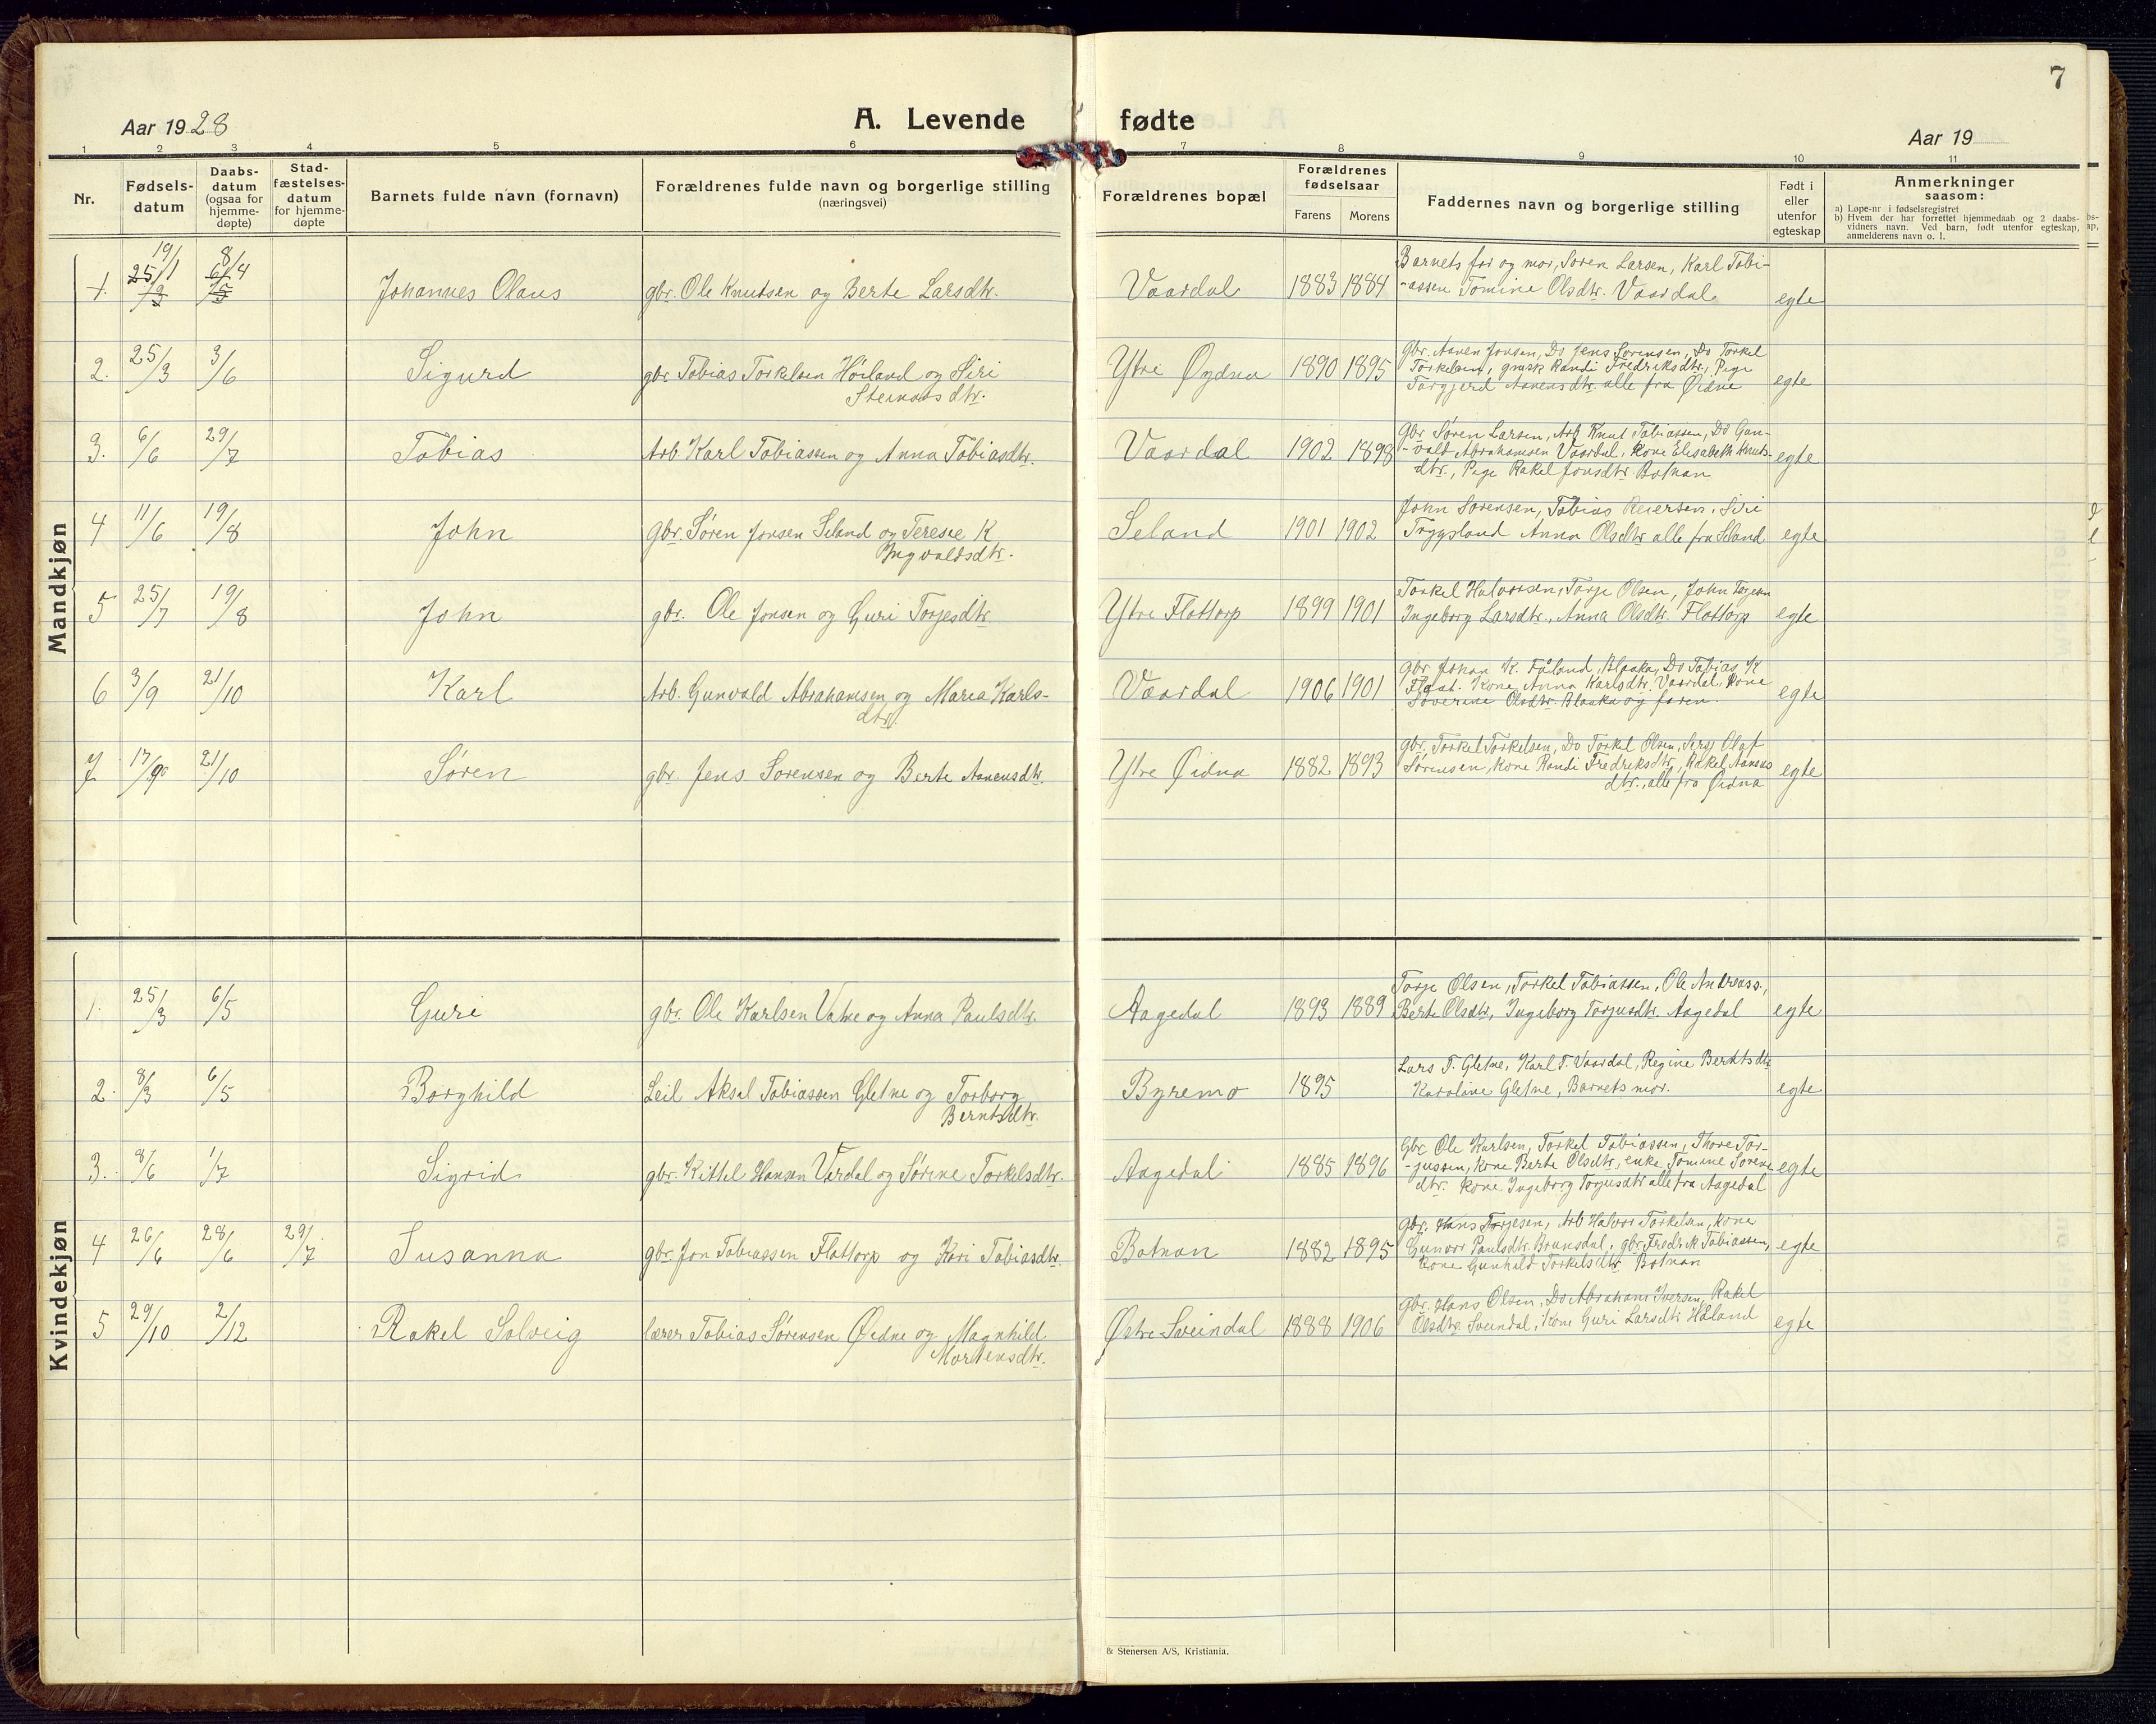 7
Aar 1928
A. Levende fødte
Aar 19
1 2 3 4 5 6 7 8 9 10 11
Nr.
Fødsels-
datum
Daabs-
datum
(ogsaa for
hjemme-
døpte)
Stad-
fæstelses-
datum
for hjemme-
døpte
Barnets fulde navn (fornavn)
Forældrenes fulde navn og borgerlige stilling
(næringsvei)
Forældrenes bopæl
Forældrenes
fødselsaar
Farens Morens
Faddernes navn og borgerlige stilling
Født i
eller
utenfor
egteskap
Anmerkninger
saasom:
a) Løpe-nr i fødselsregistret
b) Hvem der har forrettet hjemmedaab og 2 daabs-
vidners navn. Ved barn, født utenfor egteskap,
anmelderens navn o. l.
Mandkjøn
1. 19/1 8/4 Johannes Olaus gbr. Ole Knutsen og Berte Larsdtr. Vaardal 1883 1884 egte
Barnets far og mor, Søren Larsen, Karl Tobi-
-assen Tomine Olsdtr. Vaardal
2. 25/3 3/6 Sigurd gbr Tobias Torkelsen Høiland og Siri Ytre Øydna 1890 1895 egte
Steinarsdtr.
Gbr. Aanen Jonsen, Do Jens Sørensen, Do Torkel
Torkelsen, Randi Fredriksdtr., Pige
Torgjerd Aanensdtr. alle fra Øidne
3. 6/6 29/7 Tobias Arb. Karl Tobiassen og Anna Tobiasdtr. Vaardal 1902 1898 egte
Gbr Søren Larsen, Arb Knut Tobiassen, Do Gun-
-vald Abrahamsen Vaardal, Kone Elisabeth Knuts-
dtr., Pige Rakel Jonsdtr Botnan
4 11/6 19/8 John Gbr. Søren Jonsen Seland og Terese K Seland 1901 1902 egte
Ingvaldsdtr.
John Sørensen, Tobias Reiersen, Siri
Tryggsland Anna Olsdtr alle fra Seland
5 25/7 19/8 John gbr. Ole Jonsen og Guri Torjesdtr Ytre Flottorp 1899 1901 egte
Torkel Halvorsen, Torje Olsen, John Torjesen
Ingeborg Larsdtr., Anna Olsdtr. Flottorp
6 3/9 21/10 Karl Arb. Gunvald Abrahamsen og Maria Karls- Vaardal 1906 1901 egte
dtr.
Gbr Johan K. Blaaka, Do Tobias K
Flaat. Kone Anna Karlsdtr. Vaardal, Kone
Olsdtr. Blaaka og faren.
7 17/9 21/10 Søren gbr. Jens Sørensen og Berte Aanensdtr. Ytre Øidna 1882 1893 egte
gbr. Torkel Torkelsen, Do Torkel Olsen, Olaf
Sørensen, Kone Randi Fredriksdtr, Rakel Aanens
dtr., alle fra Øidna
Kvindekjøn
1. 25/3 6/5 Guri gbr. Ole Karlsen Vatne og Anna Paulsdtr. Aagedal 1893 1889 egte
Torje Olsen, Torkel Tobiassen, Ole Andreass.,
Berte Olsdtr, Ingeborg Torjusdtr. Aagedal
2. 8/3 6/5 Borghild Leil Aksel Tobiassen Gletne og Torborg Byremo 1895 egte
Berntsdtr.
Lars T. Gletne, Karl T. Vaardal, Regine Berntsdtr
Karoline Gletne, Barnets mor.
3. 8/6 1/7 Sigrid gbr. Kittel Hansen Værdal og Sørine Torkelsdtr. Aagedal 1885 1896 egte
Gbr. Ole Karlsen, Torkel Tobiassen, Thore Tor-
-jussen, Kone Berte Olsdtr, enke Tomine Sørens
dtr. Kone Ingeborg Torjusdtr alle fra Aagedal
4 26/6 28/6 29/7 Susanna gbr. Jon Tobiassen Flottorp og Kari Tobiasdtr. Botnan 1882 1895 egte
Gbr. Hans Torjesen, Arb Halvor Torkelsen, Kone
Gunvor Paulsdtr. Brunsdal, gbr. Fredrik Tobiassen,
Kone Gunhild Torkelsdtr Botnan
5 29/10 2/12 Rakel Solveig lærer Tobias Sørensen Øidne og Magnhild Østre Sveindal 1888 1906 egte
Mortensdtr.
Gbr. Hans Olsen, Do Abraham Iversen, Rakel
Olsdtr. Sveindal, Kone Guri Larsdtr Håland
& Stenersen A/S, Kristiania.